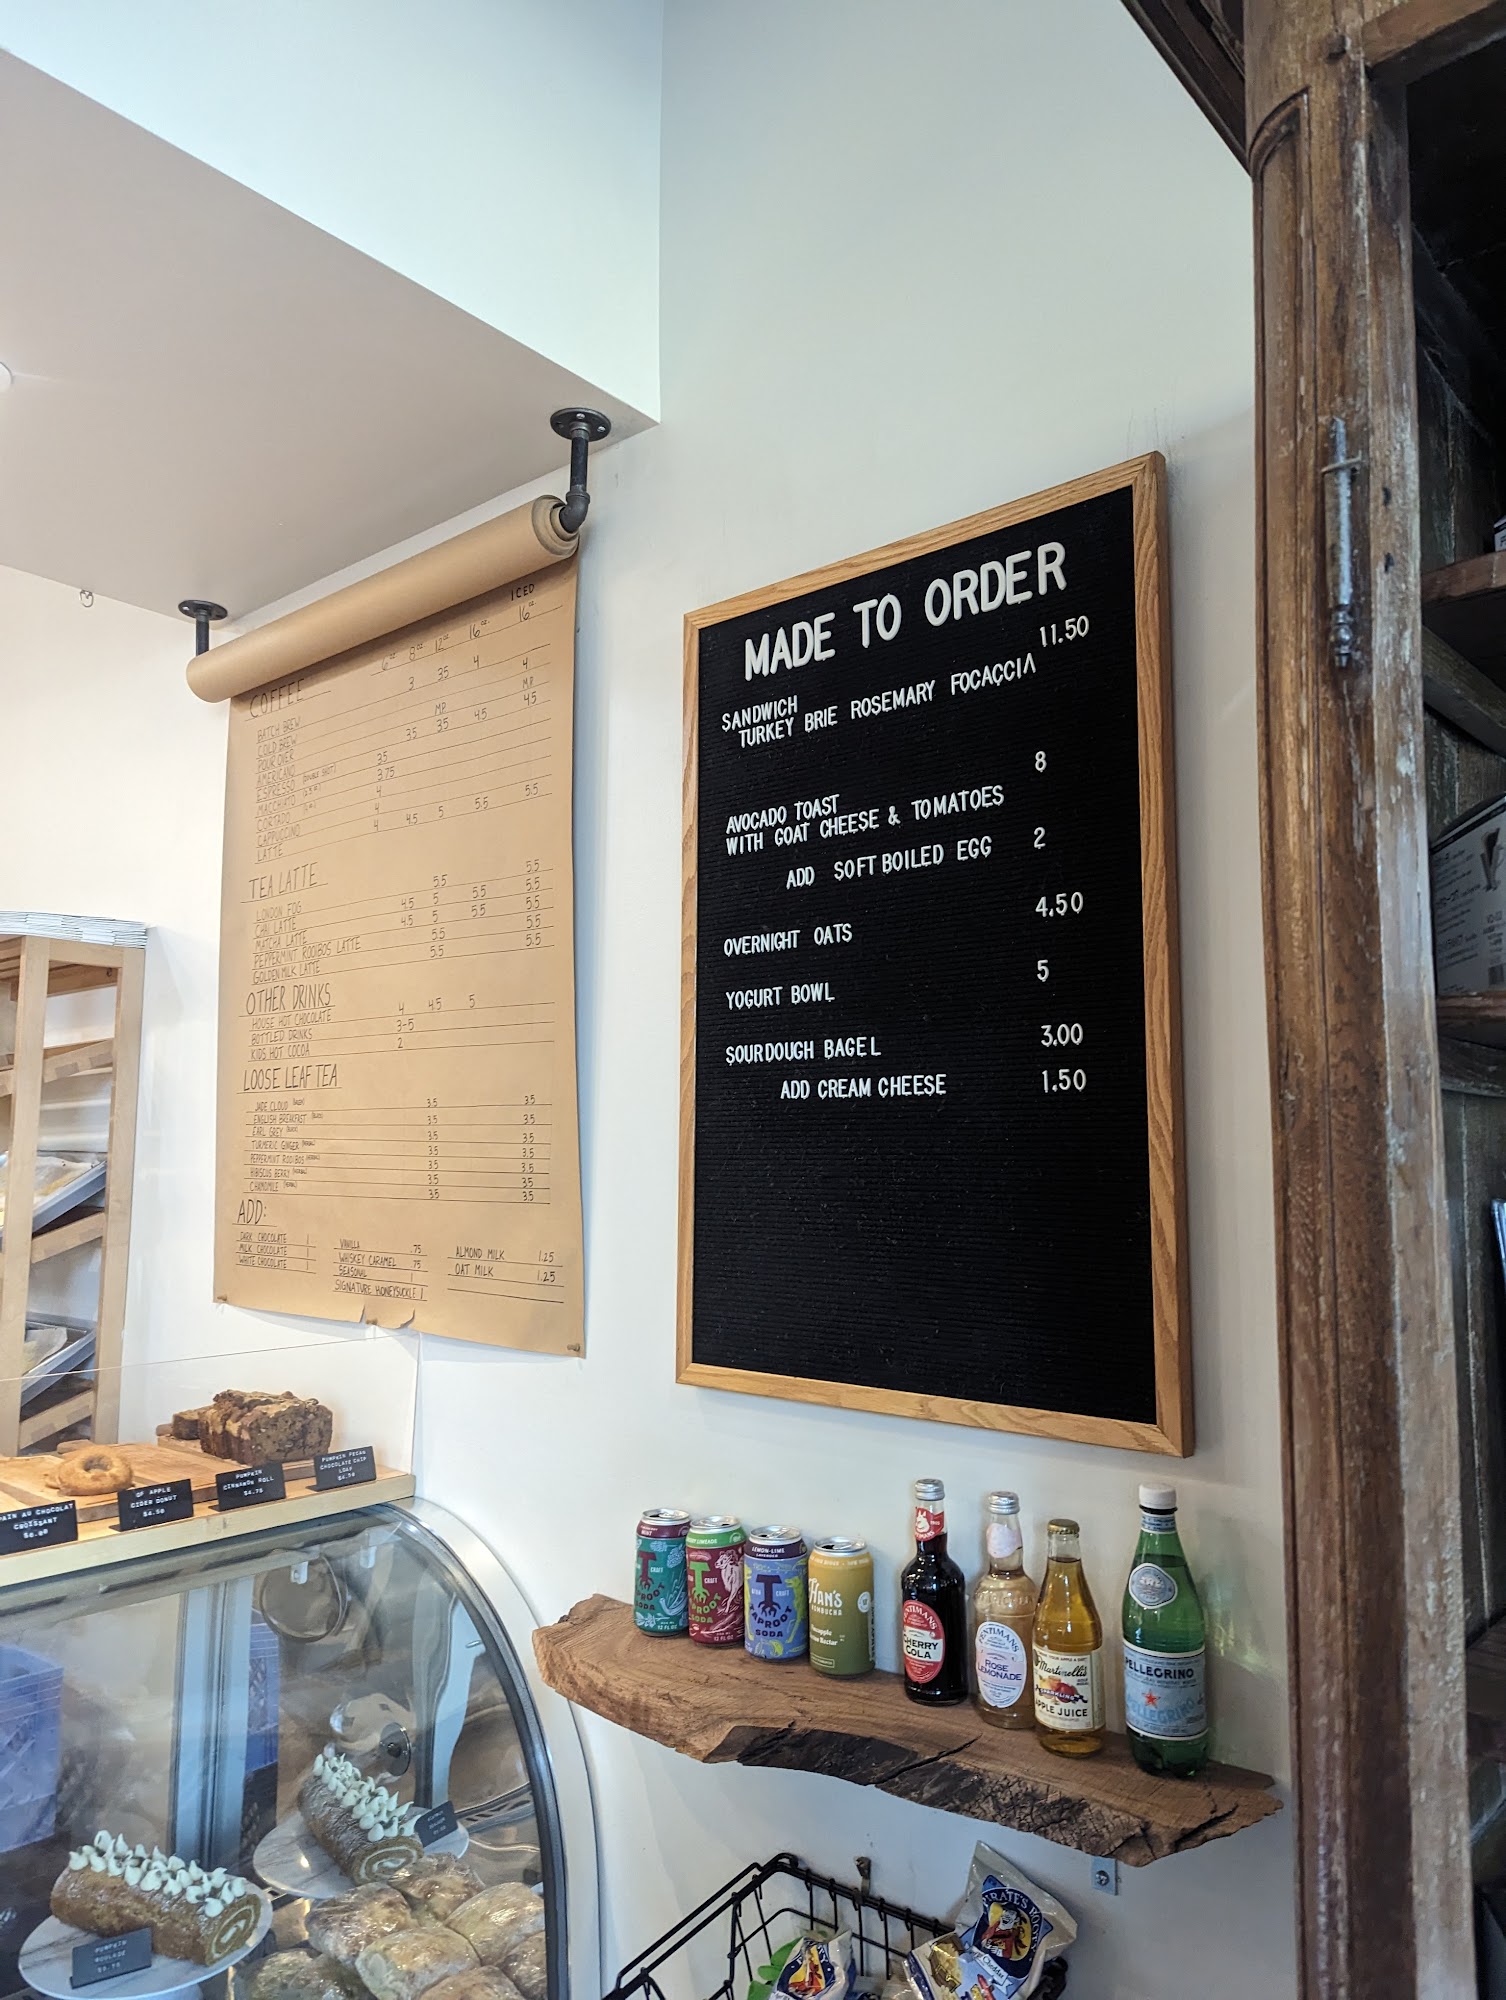 ICED
6oz 8oz 12oz 16oz 16oz
COFFEE
BATCH BREW 3 3.5 4 4
COLD BREW M.P.
POUR OVER M.P.
AMERICANO 3.5 3.5 4.5 4.5
ESPRESSO (DOUBLE SHOT) 3.5
MACCHIATO 3.75
CORTADO 4
CAPPUCCINO 4
LATTE 4 4.5 5 5.5 5.5
TEA LATTE
LONDON FOG 5.5 5.5
CHAI LATTE 4.5 5 5.5 5.5
MATCHA LATTE 4.5 5 5.5 5.5
PEPPERMINT ROOIBOS LATTE 5.5 5.5
GOLDEN MILK LATTE 5.5 5.5
OTHER DRINKS
HOUSE HOT CHOCOLATE 4 4.5 5
BOTTLED DRINKS 3-5
KIDS HOT COCOA 2
LOOSE LEAF TEA
JADE CLOUD (GREEN) 3.5 3.5
ENGLISH BREAKFAST (BLACK) 3.5 3.5
EARL GREY (BLACK) 3.5 3.5
TURMERIC GINGER (HERBAL) 3.5 3.5
PEPPERMINT ROOIBOS (HERBAL) 3.5 3.5
HIBISCUS BERRY (HERBAL) 3.5 3.5
CHAMOMILE (HERBAL) 3.5 3.5
ADD:
DARK CHOCOLATE 1
MILK CHOCOLATE 1
WHITE CHOCOLATE 1
VANILLA .75
WHISKEY CARAMEL .75
SEASONAL 1
SIGNATURE HONEYSUCKLE 1
ALMOND MILK 1.25
OAT MILK 1.25
MADE TO ORDER
SANDWICH 11.50
TURKEY BRIE ROSEMARY FOCACCIA
AVOCADO TOAST 8
WITH GOAT CHEESE & TOMATOES
ADD SOFT BOILED EGG 2
OVERNIGHT OATS 4.50
YOGURT BOWL 5
SOURDOUGH BAGEL 3.00
ADD CREAM CHEESE 1.50
PAIN AU CHOCOLAT
CROISSANT
$6.00
GF APPLE
CIDER DONUT
$4.50
PUMPKIN
CINNAMON ROLL
$4.75
PUMPKIN PECAN
CHOCOLATE CHIP
LOAF
$4.50
MINT
CRAFT
TAPROOT
SODA
12 FL OZ
LIMEADE
CRAFT
TAPROOT
SODA
12 FL OZ
LEMON-LIME
LAVENDER
CRAFT
TAPROOT
SODA
HAN'S
KOMBUCHA
Pineapple
FENTIMANS
CHERRY
COLA
FENTIMANS
ROSE
LEMONADE
Martinelli's
SPARKLING
APPLE JUICE
S.PELLEGRINO
S.PELLEGRINO
PUMPKIN
ROULADE
PIRATE'S BOOTY